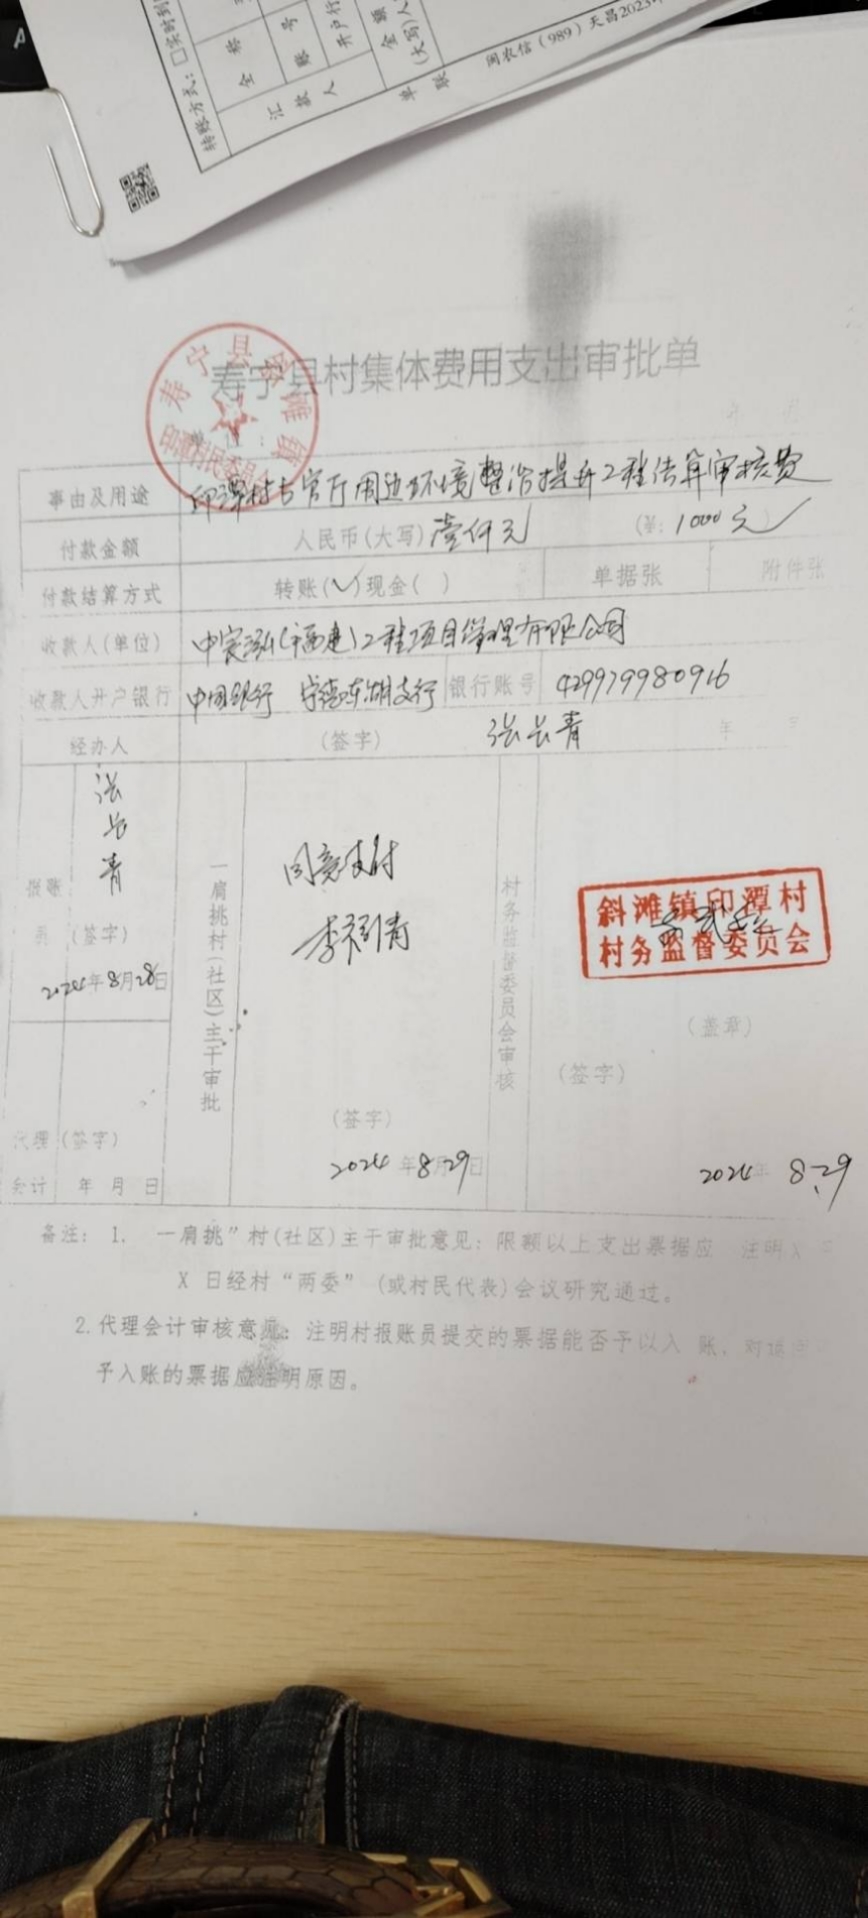 转账方式：□实时到
全称
账号
开户行
金额
(大写)人
汇款人
单联
闽农信（989）天昌2023
寿宁县村集体费用支出审批单
寿宁县斜滩镇
印潭村民委员会
事由及用途 印潭村古官厅周边环境整治提升工程结算审核费
付款金额 人民币(大写) 壹仟元 (¥: 1000元
付款结算方式 转账(✓)现金( ) 单据张 附件张
收款人(单位) 中宸泓(福建)工程项目管理有限公司
收款人开户银行 中国银行 宁德东湖支行 银行账号 429979980916
经办人 (签字) 张长青 年 月
张长青
报账员 (签字)
2024年8月28日
代理会计 (签字)
年 月 日
一肩挑村(社区)主干审批
同意支付
(签字)
2024年8月29日
村务监督委员会审核
斜滩镇印潭村
村务监督委员会
(盖章)
(签字)
2024年 8.29
备注： 1. 一肩挑”村(社区)主干审批意见：限额以上支出票据应 注明X
X 日经村“两委”(或村民代表)会议研究通过。
2.代理会计审核意见：注明村报账员提交的票据能否予以入 账，对
予入账的票据应注明原因。